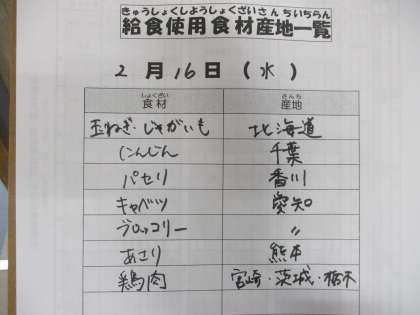 きゅうしょくしようしょくざいさんちいちらん
給食使用食材産地一覧
2月16日(水)
しょくざい さんち
食材 産地
玉ねぎ・じゃがいも 北海道
にんじん 千葉
パセリ 香川
キャベツ 愛知
ブロッコリー 〃
あさり 熊本
鶏肉 宮崎・茨城・栃木